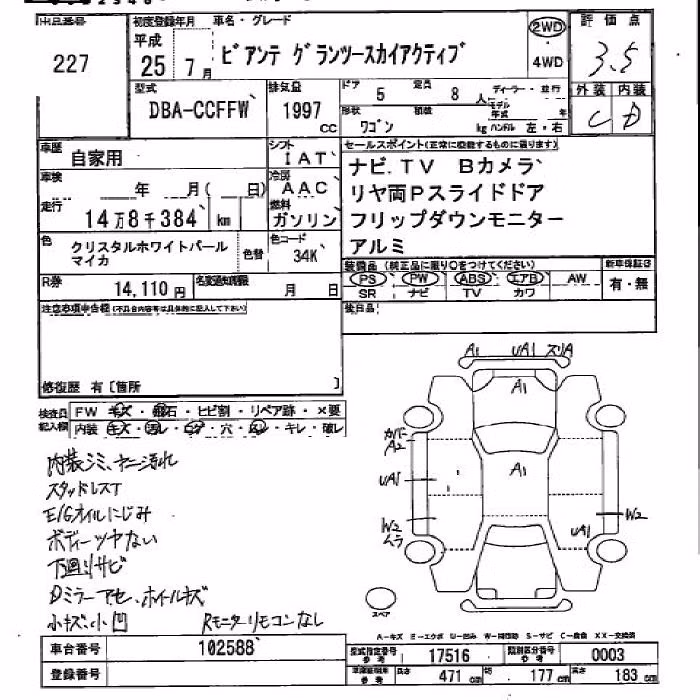 出品番号
227
初度登録年月
平成
25 7月
車名・グレード
ビアンテ グランツースカイアクティブ
2WD
・4WD
評価点
3.5
外装 内装
C D
型式
DBA-CCFFW
排気量
1997 cc
ドア 5 定員 8 人
形状 ワゴン 積載 kg
ディーラー・並行
モデル年式 年
ハンドル 左・右
車歴 自家用
シフト IAT
車検 年 月( 日)
冷房 AAC
走行 14万8千384 km
燃料 ガソリン
色 クリスタルホワイトパール
マイカ
色替
色コード 34K
R券 14,110円
名変通知期限 月 日
セールスポイント(正常に機能するものに限ります)
ナビ.TV Bカメラ
リヤ両Pスライドドア
フリップダウンモニター
アルミ
装備品 (純正品に限り○をつけてください)
PS PW ABS エアB AW
SR ナビ TV カワ
新車保証書
有・無
後日品
注意事項申告欄 (不具合内容等は具体的に記入して下さい)
修復歴 有〔箇所 〕
検査員記入欄
FW キズ・飛石・ヒビ割・リペア跡・×要
内装 キズ・汚レ・コゲ・穴・ハレ・キレ・破レ
内装シミ、ヤニ汚れ
スタッドレスT
E/Gオイルにじみ
ボディーツヤない
下廻りサビ
Dミラーアセ、ホイルキズ
小キズ、小凹 RモニターリモコンなL
A1 UA1 スリA
A1
カバーA2
UA1
A1
W2
ムラ
UA1
W2
スペア
A-キズ E-エクボ U-凹み W-補修跡 S-サビ C-腐食 XX-交換済
車台番号 102588
登録番号
型式指定番号 参考 17516
類別区分番号 参考 0003
参考 長さ 471 cm 巾 177 cm 高さ 183 cm